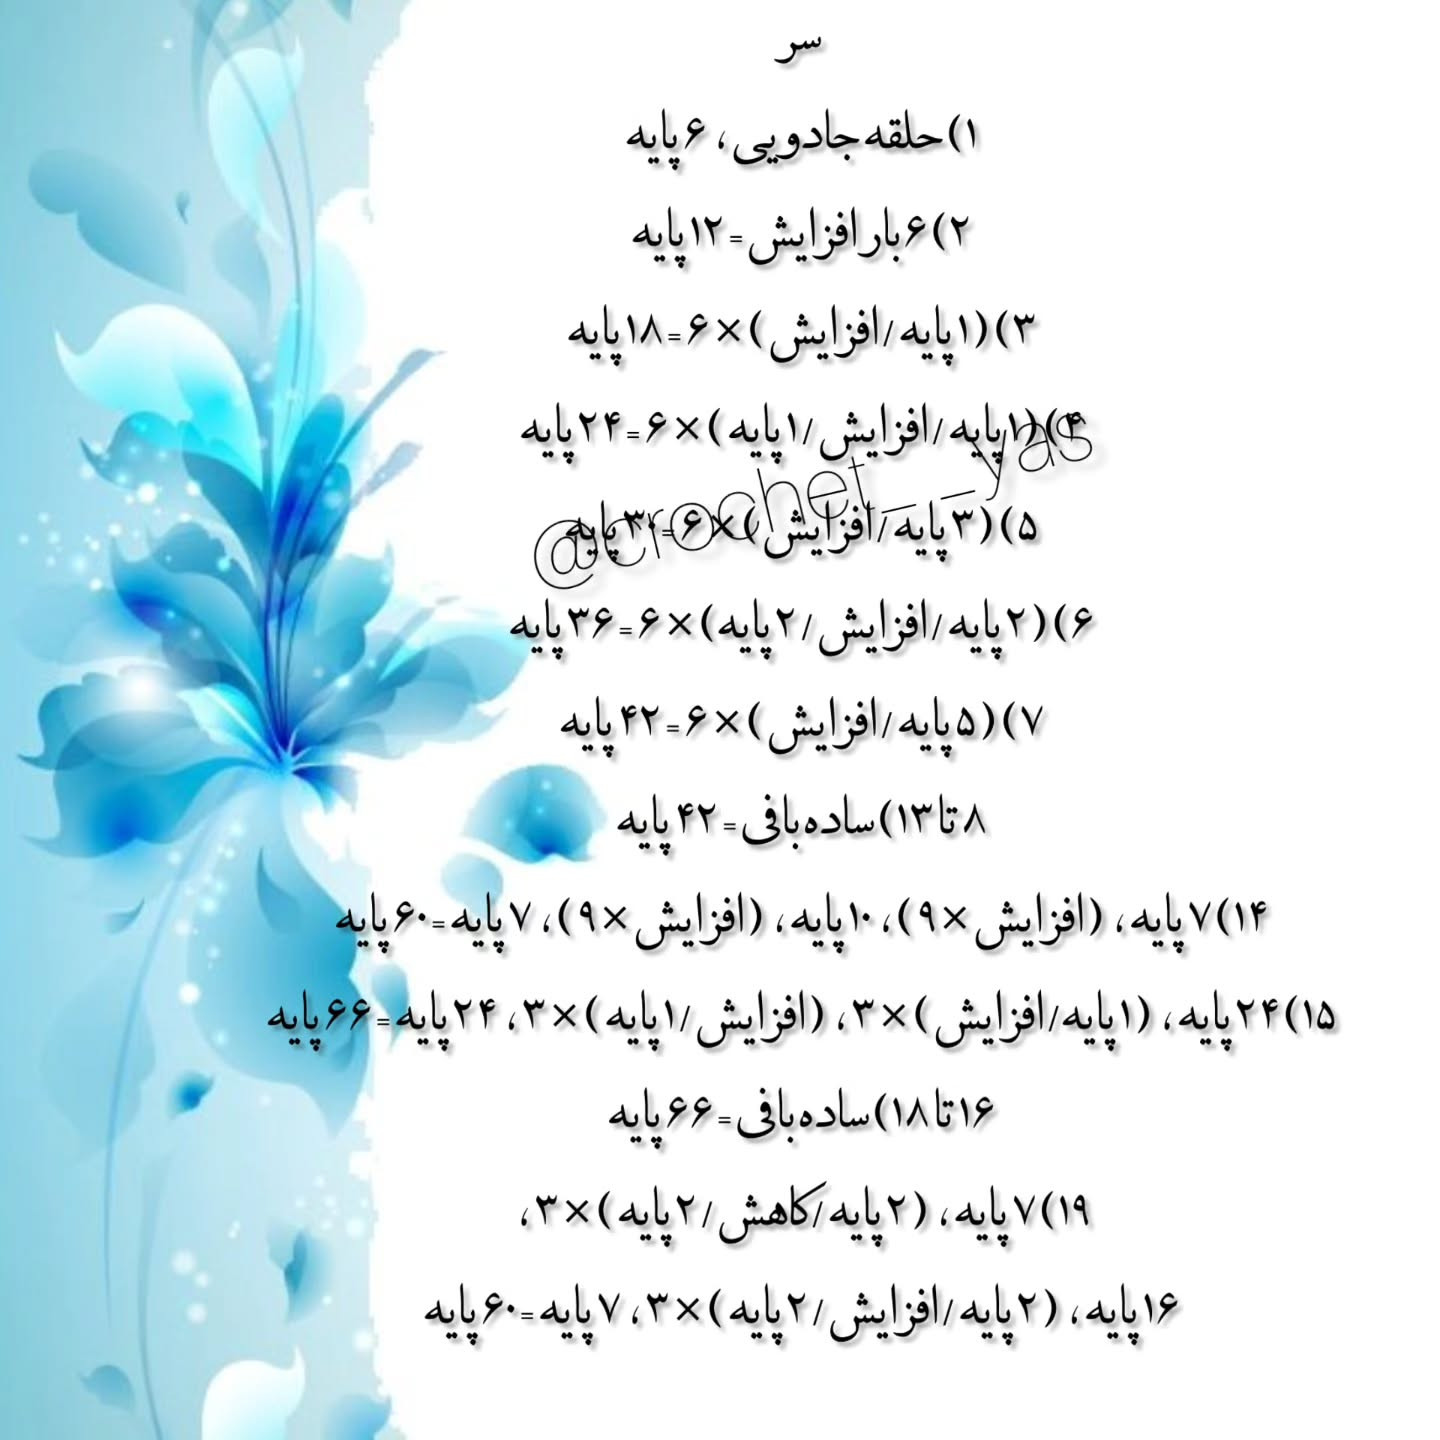 سر
۱)حلقه جادویی، ۶پایه
۲)۶بار افزایش=۱۲پایه
۳)(۱پایه/افزایش)×۶=۱۸پایه
۴)(۱پایه/افزایش/۱پایه)×۶=۲۴پایه
@crochet__yas
۵)(۳پایه/افزایش)×۶=۳۰پایه
۶)(۲پایه/افزایش/۲پایه)×۶=۳۶پایه
۷)(۵پایه/افزایش)×۶=۴۲پایه
۸تا۱۳)ساده بافی=۴۲پایه
۱۴)۷پایه، (افزایش×۹)، ۱۰پایه، (افزایش×۹)، ۷پایه=۶۰پایه
۱۵)۲۴پایه، (۱پایه/افزایش)×۳، (افزایش/۱پایه)×۳، ۲۴پایه=۶۶پایه
۱۶تا۱۸)ساده بافی=۶۶پایه
۱۹)۷پایه، (۲پایه/کاهش/۲پایه)×۳،
۱۶پایه، (۲پایه/افزایش/۲پایه)×۳، ۷پایه=۶۰پایه